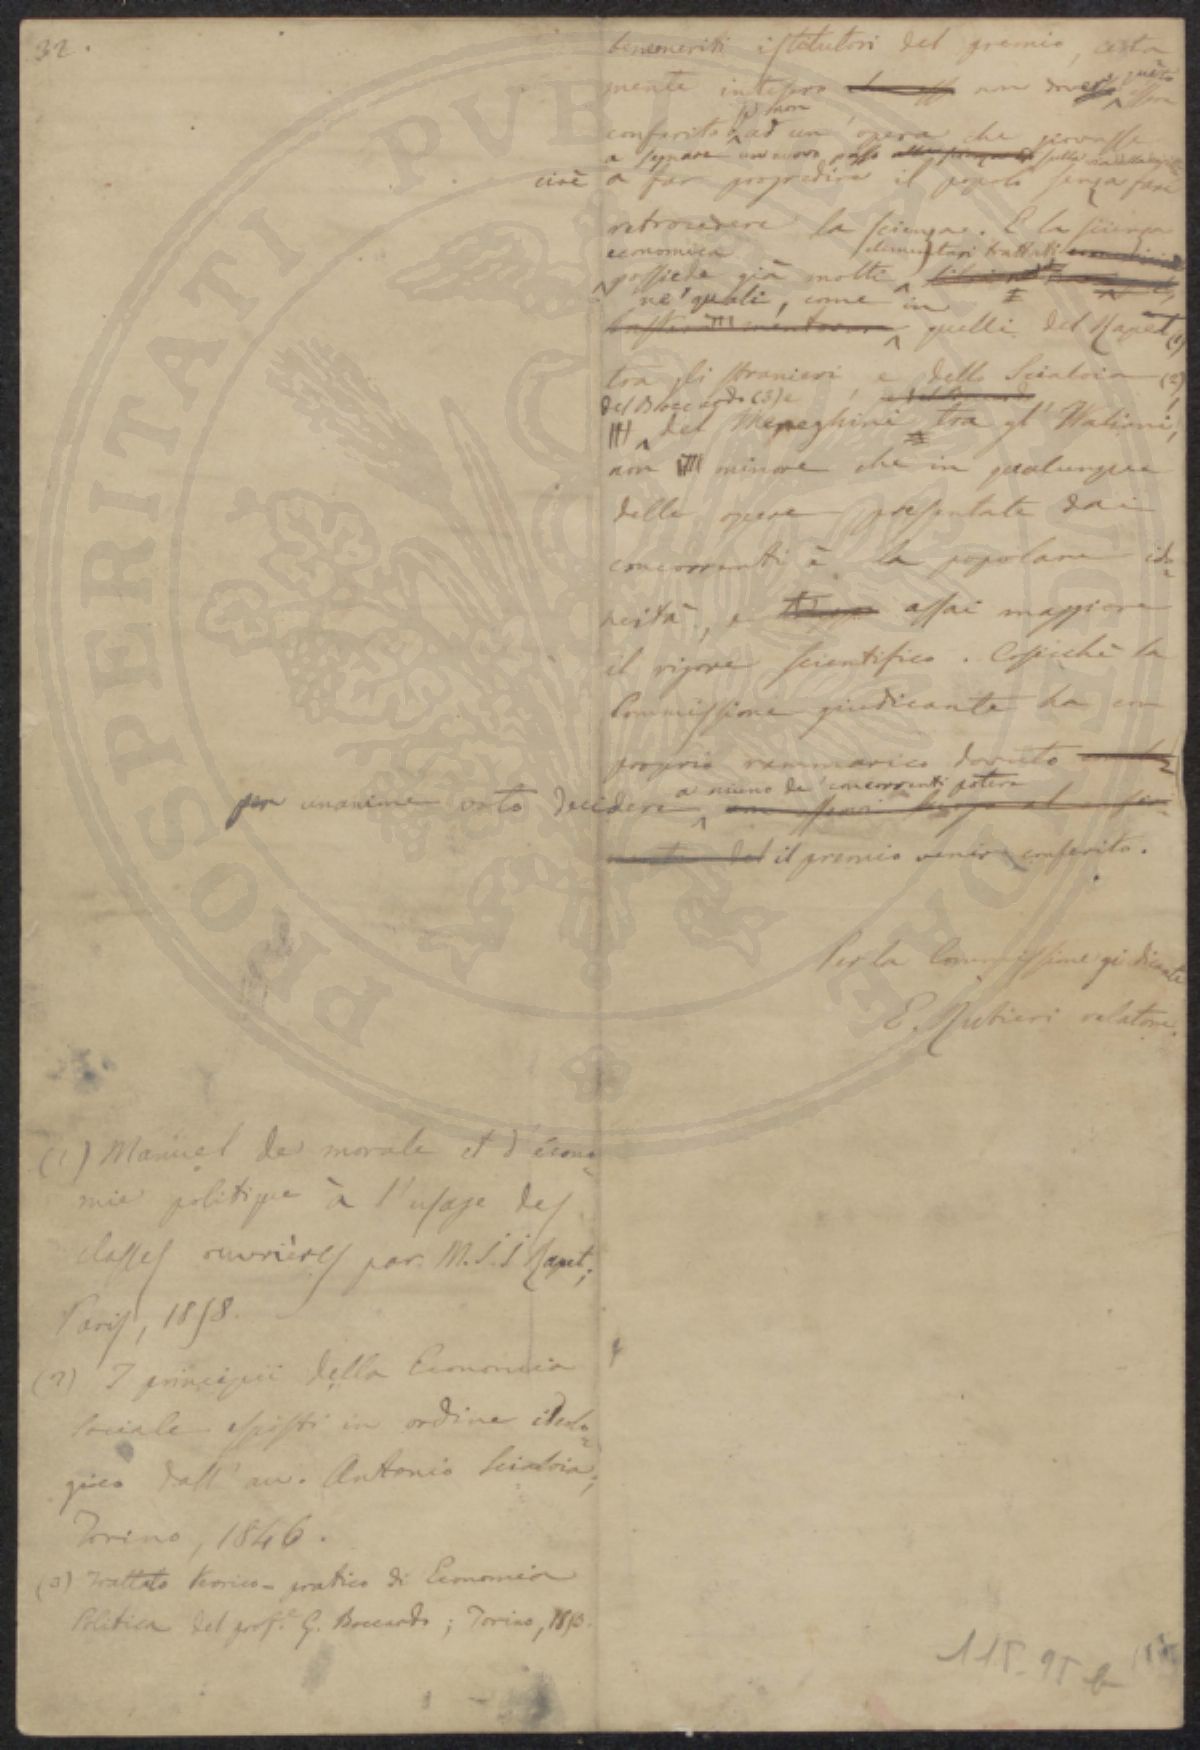 32.
benemeriti istitutori del premio, certa
mente intesero non dover questo esser
conferito se non ad un' opera che giovasse
a segnare un nuovo passo sulla via della
cioè a far progredire il popolo senza fare
retrocedere la scienza. E la scienza
economica
possiede già molti elementari trattati
ne' quali, come in quelli del Rapet (1)
tra gli stranieri, e dello Scialoia (2),
del Boccardo (3) e
del Meneghini tra gl' Italiani,
non minore che in qualunque
delle opere presentate dai
concorrenti è la popolare ido=
neità, e assai maggiore
il rigore scientifico. Cosicchè la
Commissione giudicante ha con
proprio rammarico dovuto
per unanime voto decidere a niuno de' concorrenti potere
il premio venir conferito.
Per la Commissione giudicante
E. Rubieri relatore.
(1) Manuel de morale et d'écono=
mie politique à l'usage des
classes ouvrières par M. J. J. Rapet;
Paris, 1858.
(2) I principii della Economia
Sociale esposti in ordine ideolo=
gico dall' avv. Antonio Scialoia;
Torino, 1846.
(3) Trattato teorico-pratico di Economia
Politica del prof. G. Boccardo; Torino, 1853.
115. 95 b
PROSPERITATI PUBLICAE AUGENDAE